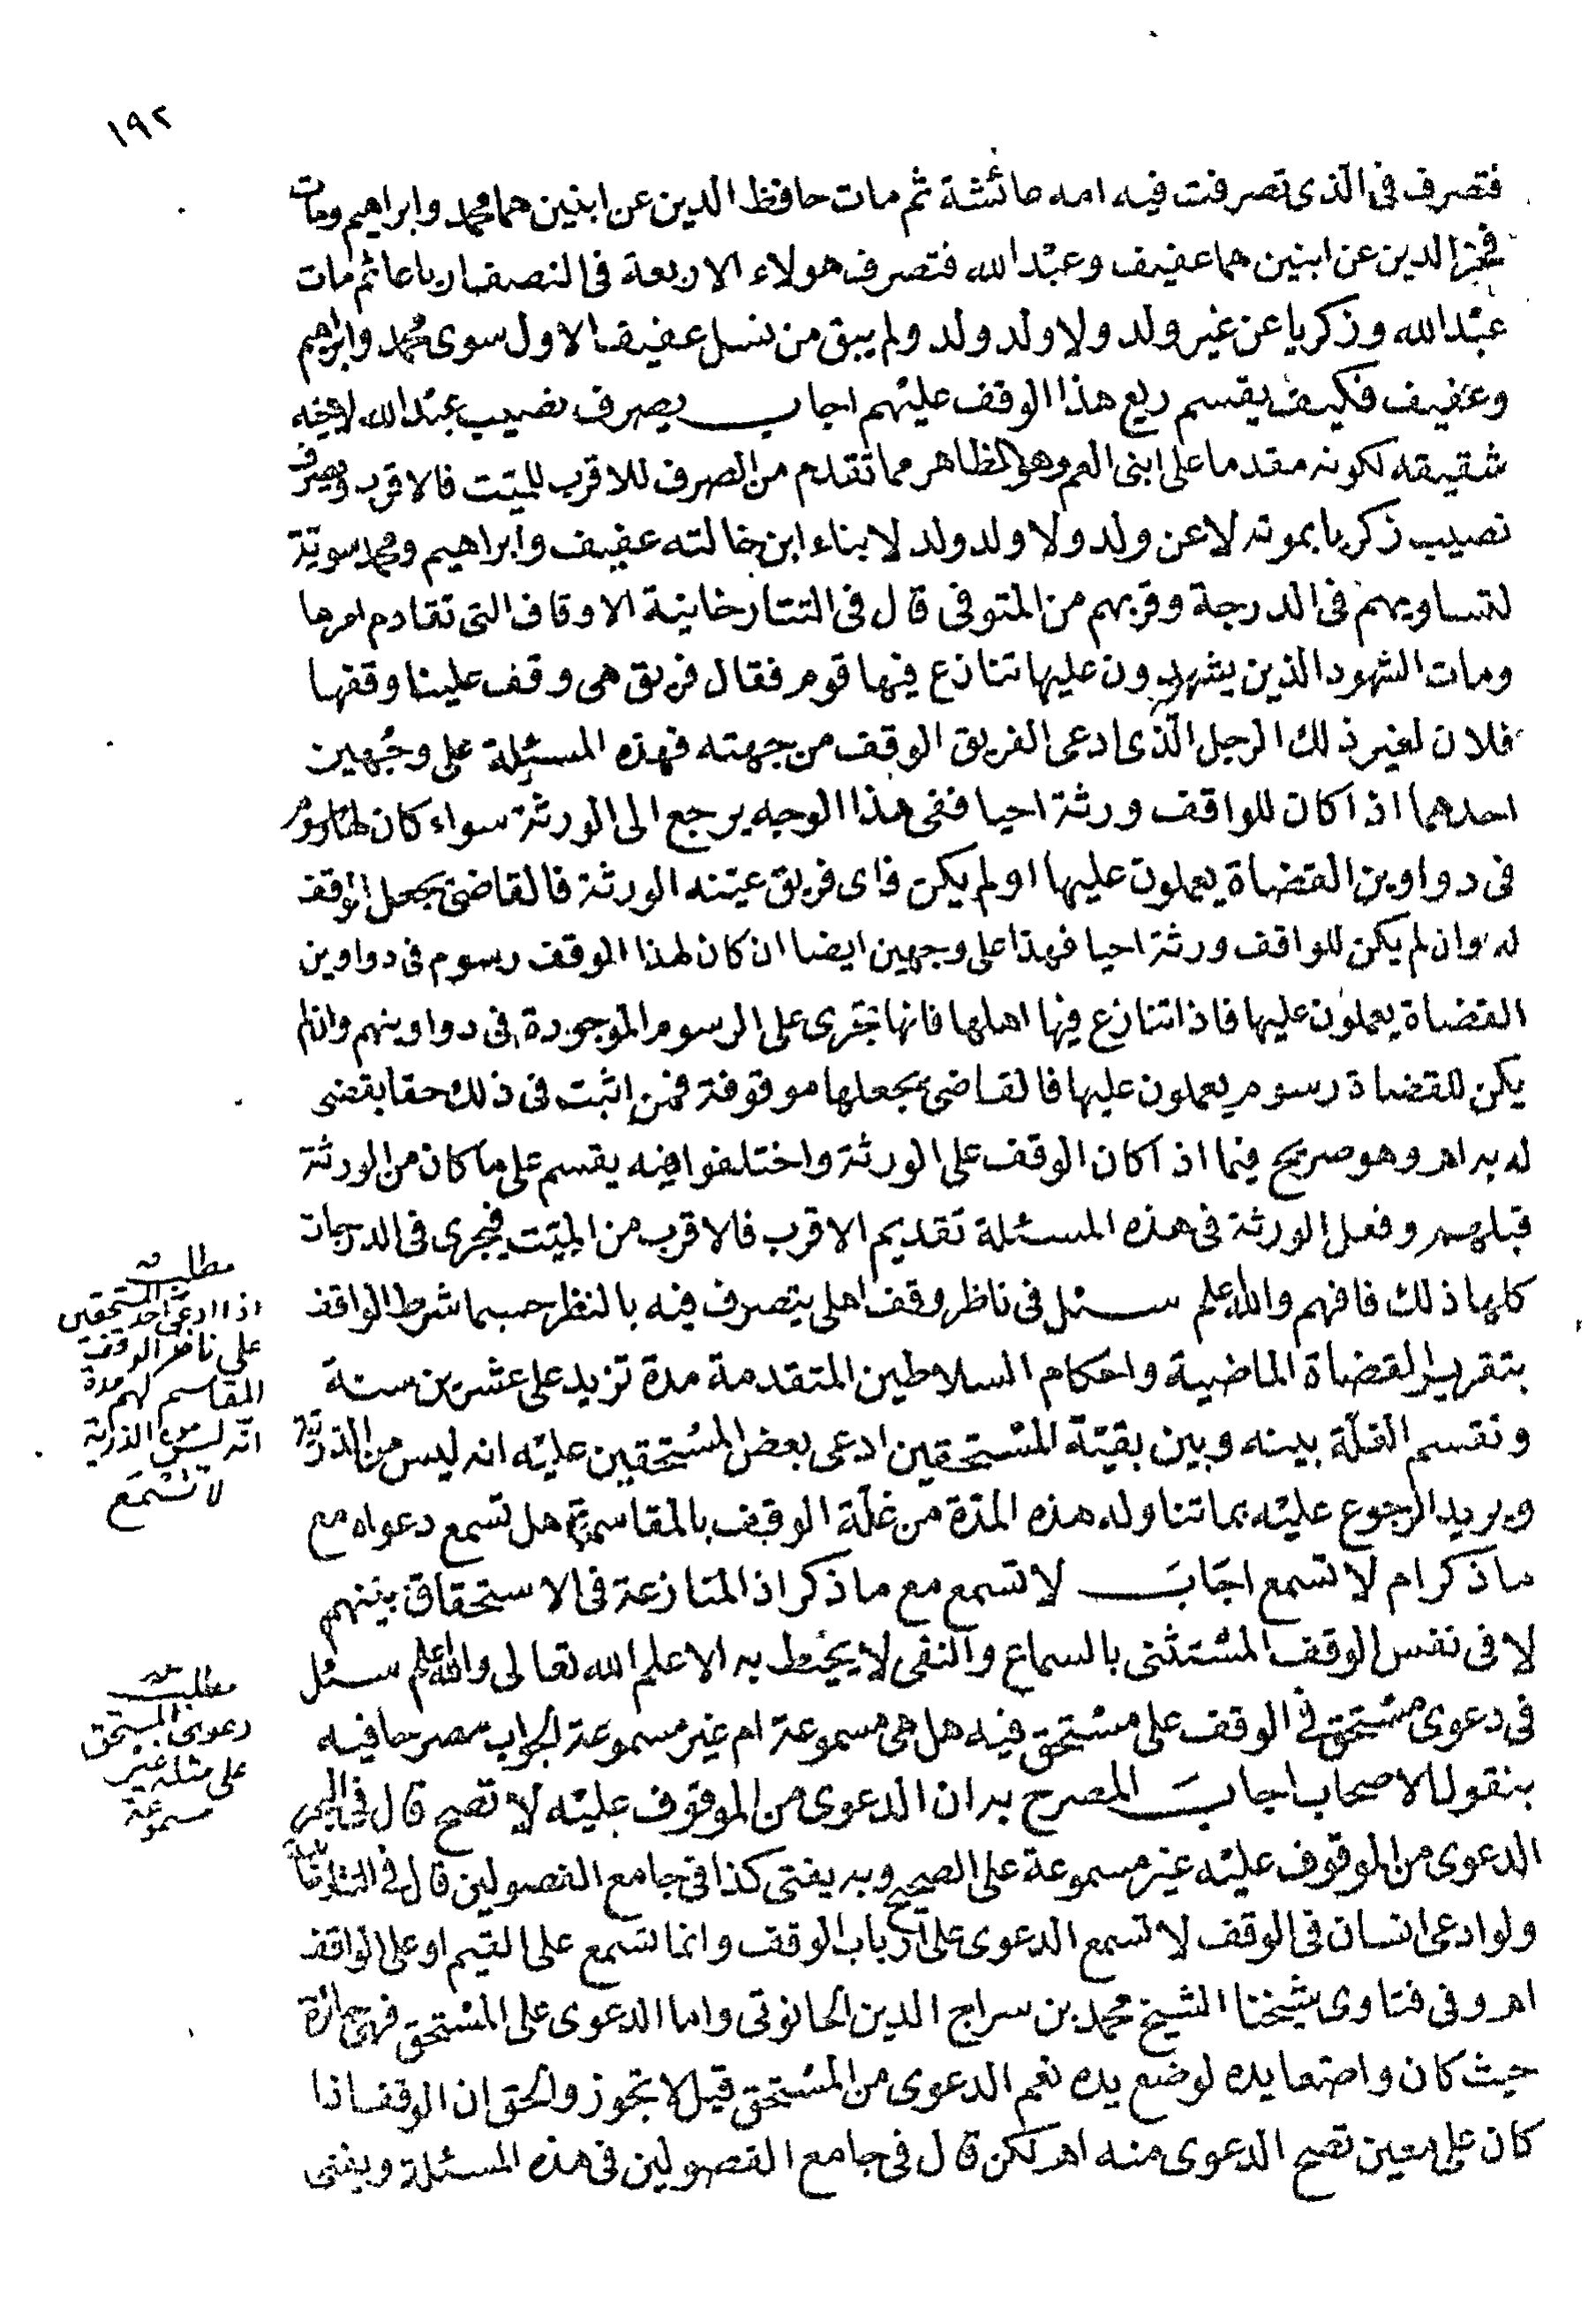 ١٩٢
فتصرف فى الذى تصرفت فيه امه عائشة ثم مات حافظ الدين عن ابنين هما محمد وابراهيم ومات
فخر الدين عن ابنين هما عفيف وعبد الله فتصرف هولاء الاربعة فى النصف ارباعا ثم مات
عبد الله وزكريا عن غير ولد ولا ولد ولد ولم يبق من نسل عفيف الاول سوى محمد وابراهيم
وعفيف فكيف يقسم ريع هذا الوقف عليهم اجاب يصرف نصيب عبد الله لاخيه
شقيقه لكونه مقدما على ابنى العم وهو الظاهر مما تقدم من الصرف للاقرب للميت فالاقرب ويصرف
نصيب زكريا بموته لا عن ولد ولا ولد ولد لابناء ابن خالته عفيف وابراهيم ومحمد سوية
لتساويهم فى الدرجة وقربهم من المتوفى قال فى التتارخانية الاوقاف التى تقادم امرها
ومات الشهود الذين يشهدون عليها تنازع فيها قوم فقال فريق هى وقف علينا وقفها
فلان لغير ذلك الرجل الذى ادعى الفريق الوقف من جهته فهذه المسئلة على وجهين
احدهما اذا كان للواقف ورثة احيا ففى هذا الوجه يرجع الى الورثة سواء كان لها رسوم
فى دواوين القضاة يعملون عليها او لم يكن فاى فريق عينه الورثة فالقاضى يجعل الوقف
له وان لم يكن للواقف ورثة احيا فهذا على وجهين ايضا ان كان لهذا الوقف رسوم فى دواوين
القضاة يعملون عليها فاذا تنازع فيها اهلها فانها تجرى على الرسوم الموجودة فى دواوينهم وان لم
يكن للقضاة رسوم يعملون عليها فالقاضى يجعلها موقوفة فمن اثبت فى ذلك حقا يقضى
له به اهـ وهو صريح فيما اذا كان الوقف على الورثة واختلفوا فيه يقسم على ما كان من الورثة
قبلهم وفعل الورثة فى هذه المسئلة تقديم الاقرب فالاقرب من الميت فيجرى فى الدرجات
كلها ذلك فافهم والله اعلم سئل فى ناظر وقف اهلى يتصرف فيه بالنظر حسبما شرط الواقف
بتقرير القضاة الماضية واحكام السلاطين المتقدمة مدة تزيد على عشرين سنة
وتقسم الغلة بينه وبين بقية المستحقين ادعى بعض المستحقين عليه انه ليس من الذرية
ويريد الرجوع عليه بما تناوله هذه المدة من غلة الوقف بالمقاسمة هل تسمع دعواه مع
ما ذكر ام لا تسمع اجاب لا تسمع مع ما ذكر اذ المنازعة فى الاستحقاق بينهم
لا فى نفس الوقف المستثنى بالسماع والنفى لا يحيط به الا علم الله تعالى والله اعلم سئل
فى دعوى مستحق فى الوقف على مستحق فيه هل هى مسموعة ام غير مسموعة الجواب مصرحا فيه
بنقول الاصحاب اجاب المصرح به ان الدعوى من الموقوف عليه لا تصح قال فى البحر
الدعوى من الموقوف عليه غير مسموعة على الصحيح وبه يفتى كذا فى جامع الفصولين قال فى التتارخانية
ولو ادعى انسان فى الوقف لا تسمع الدعوى على ارباب الوقف وانما تسمع على القيم او على الواقف
اهـ وفى فتاوى شيخنا الشيخ محمد بن سراج الدين الحانوتى واما الدعوى على المستحق فهى جائزة
حيث كان واضعا يده لوضع يده نعم الدعوى من المستحق قيل لا تجوز والحق ان الوقف اذا
كان على معين تصح الدعوى منه اهـ لكن قال فى جامع الفصولين فى هذه المسئلة ويفتى
مطلب
اذا ادعى احد المستحقين
على ناظر الوقف
المقاسم لهم مدة
انه ليس من الذرية
لا تسمع
مطلب
دعوى المستحق
على مثله غير
مسموعة